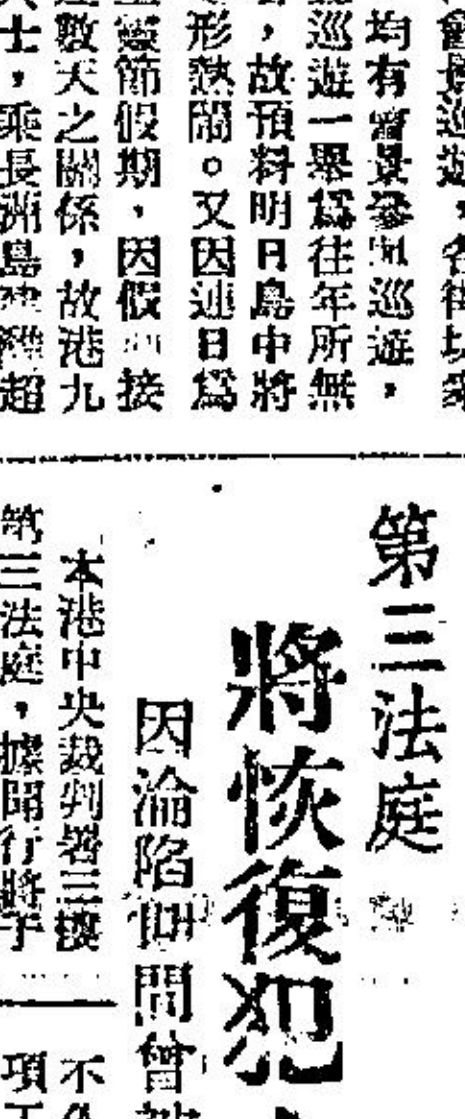 會景巡遊,各街坊衆
均有會景參加巡遊,
巡遊一舉爲往年所無
,故預料明日島中將
形熱鬧。又因連日爲
靈節假期,因假期接
數天之關係,故港九
士,乘長洲島建灣超
第三法庭
將恢復犯
因淪陷期間曾被
本港中央裁判署三樓
第三法庭,據聞行將予
不
項